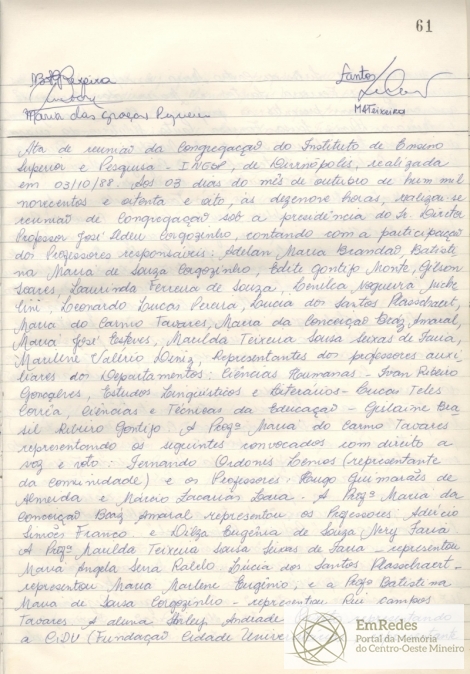 61
Santos
Maria das Graças
M.Teixeira
Ata de reunião da Congregação do Instituto de Ensino
Superior e Pesquisa - INESP, de Divinópolis, realizada
em 03/10/88. Aos 03 dias do mês de outubro de hum mil
novecentos e oitenta e oito, às dezenove horas, realizou-se
reunião de Congregação sob a presidência do Sr. Diretor
Professor José Corgozinho, contando com a participação
dos Professores responsáveis: Maria Brandão, Batisti
na Maria de Souza Corgozinho, Edite Gontijo Monte, Gilson
Soares, Laurinda Ferreira de Souza, Nogueira
Leonardo Lucas Pereira, Lúcia dos Santos Plasschaert,
Maria do Carmo Tavares, Maria da Conceição Amaral,
Maria José Esteves, Marilda Teixeira Sousa Seixas de Faria,
Marilene Valério Diniz, Representantes dos professores auxi
liares dos Departamentos: Ciências Humanas - Ivan Ribeiro
Gonçalves, Estudos Linguísticos e Literários - Lucas Teles
Corrêa, Ciências e Técnicas da Educação - Gislaine Bra
sil Ribeiro Gontijo. A Profª Maria do Carmo Tavares
representando os seguintes convocados com direito a
voz e voto: Fernando Ordones Lemos (representante
da comunidade) e os Professores: Hugo Guimarães de
Almeida e Márcio Lara. A Profª Maria da
Conceição Amaral representou os Professores:
Simões Franco e Dilza Eugênia de Souza Nery Faria
A Profª Marilda Teixeira Sousa Seixas de Faria - representou
Maria Angela Sena Rabelo. Lúcia dos Santos Plasschaert -
representou Maria Marlene Eugênio, e a Profª Batistina
Maria de Sousa Corgozinho - representou Rui Campos
Tavares. A aluna Shirley Andrade
a CIDU (Fundação Cidade
EmRedes
Portal da Memória
do Centro-Oeste Mineiro